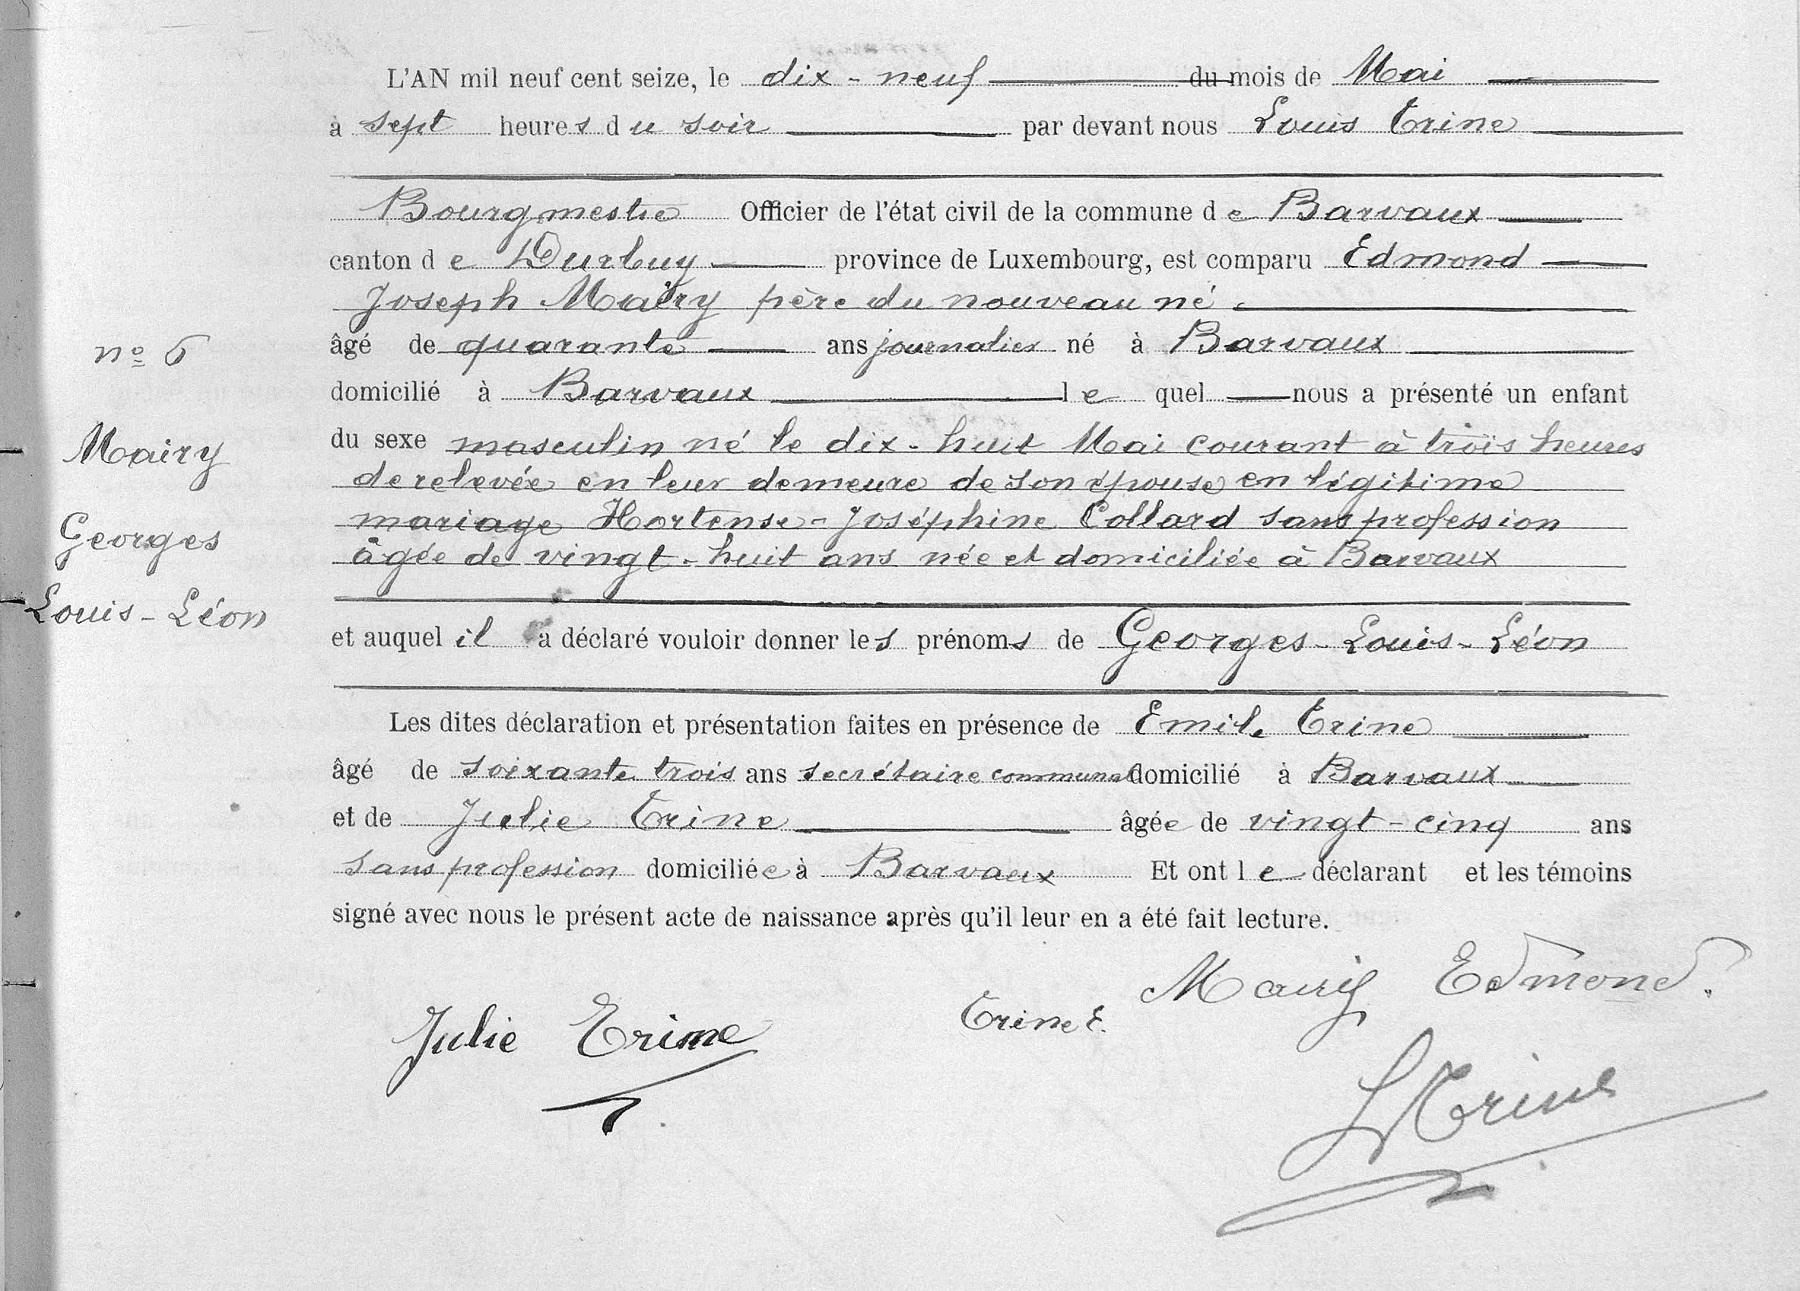 L'AN mil neuf cent seize, le dix-neuf du mois de Mai
à sept heures du soir par devant nous Louis Trine
Bourgmestre Officier de l'état civil de la commune de Barvaux
canton de Durbuy province de Luxembourg, est comparu Edmond
Joseph Mairy père du nouveau né
âgé de quarante ans journalier né à Barvaux
domicilié à Barvaux lequel nous a présenté un enfant
du sexe masculin né le dix-huit Mai courant à trois heures
de relevée en leur demeure de son épouse en légitime
mariage Hortense-Joséphine Collard sans profession
âgée de vingt-huit ans née et domiciliée à Barvaux
et auquel il a déclaré vouloir donner les prénoms de Georges-Louis-Léon
Les dites déclaration et présentation faites en présence de Emile Trine
âgé de soixante trois ans secrétaire communal domicilié à Barvaux
et de Julie Trine âgée de vingt-cinq ans
sans profession domiciliée à Barvaux Et ont le déclarant et les témoins
signé avec nous le présent acte de naissance après qu'il leur en a été fait lecture.
nº 6
Mairy
Georges
Louis-Léon
Mairy Edmond.
Julie Trine
Trine E.
L Trine